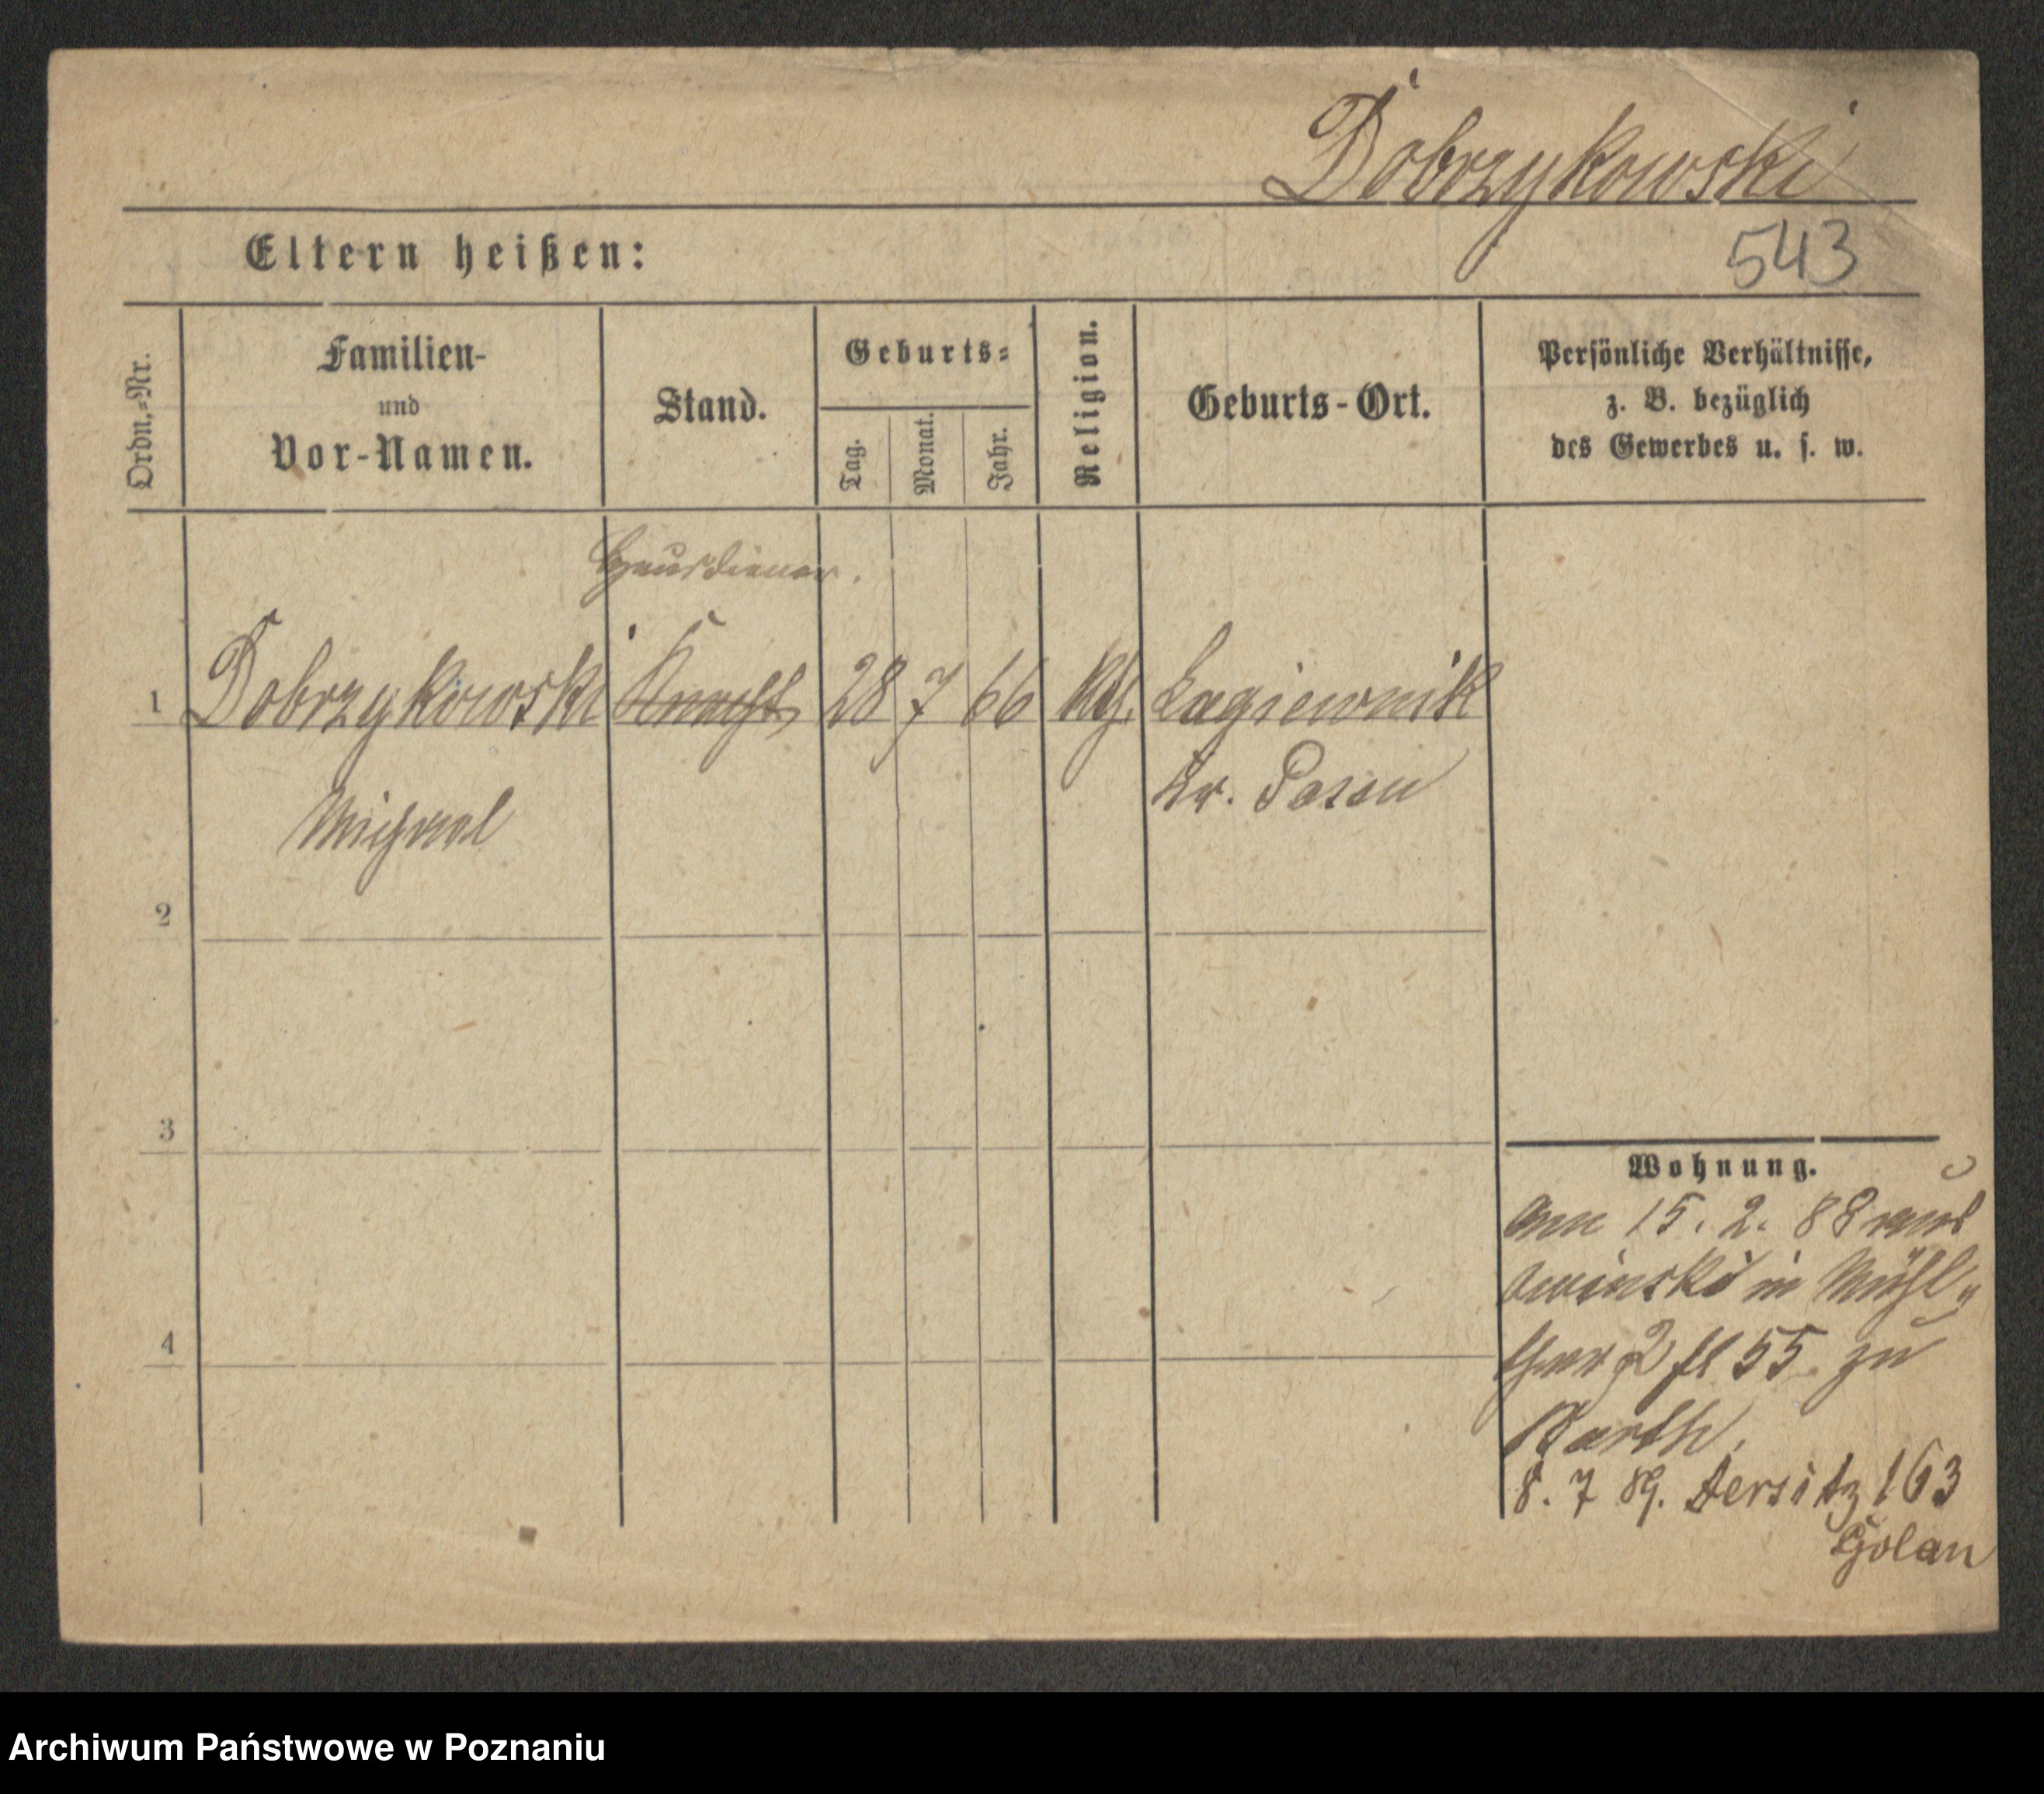 Dobrzykowski
Eltern heißen:
543
Ordn.-Nr.
Familien-
und
Vor-Namen.
Stand.
Geburts-
Tag.
Monat.
Jahr.
Religion.
Geburts-Ort.
Persönliche Verhältnisse,
z. B. bezüglich
des Gewerbes u. s. w.
Hausdiener.
1 Dobrzykowski Knecht 28 7 66 kth. Lagiewnik
Michael
Kr. Posen
2
3
4
Wohnung.
am 15. 2. 88
in Mühl
55 zu
Barth.
8. 7 89. Jersitz 163
Golan
Archiwum Państwowe w Poznaniu